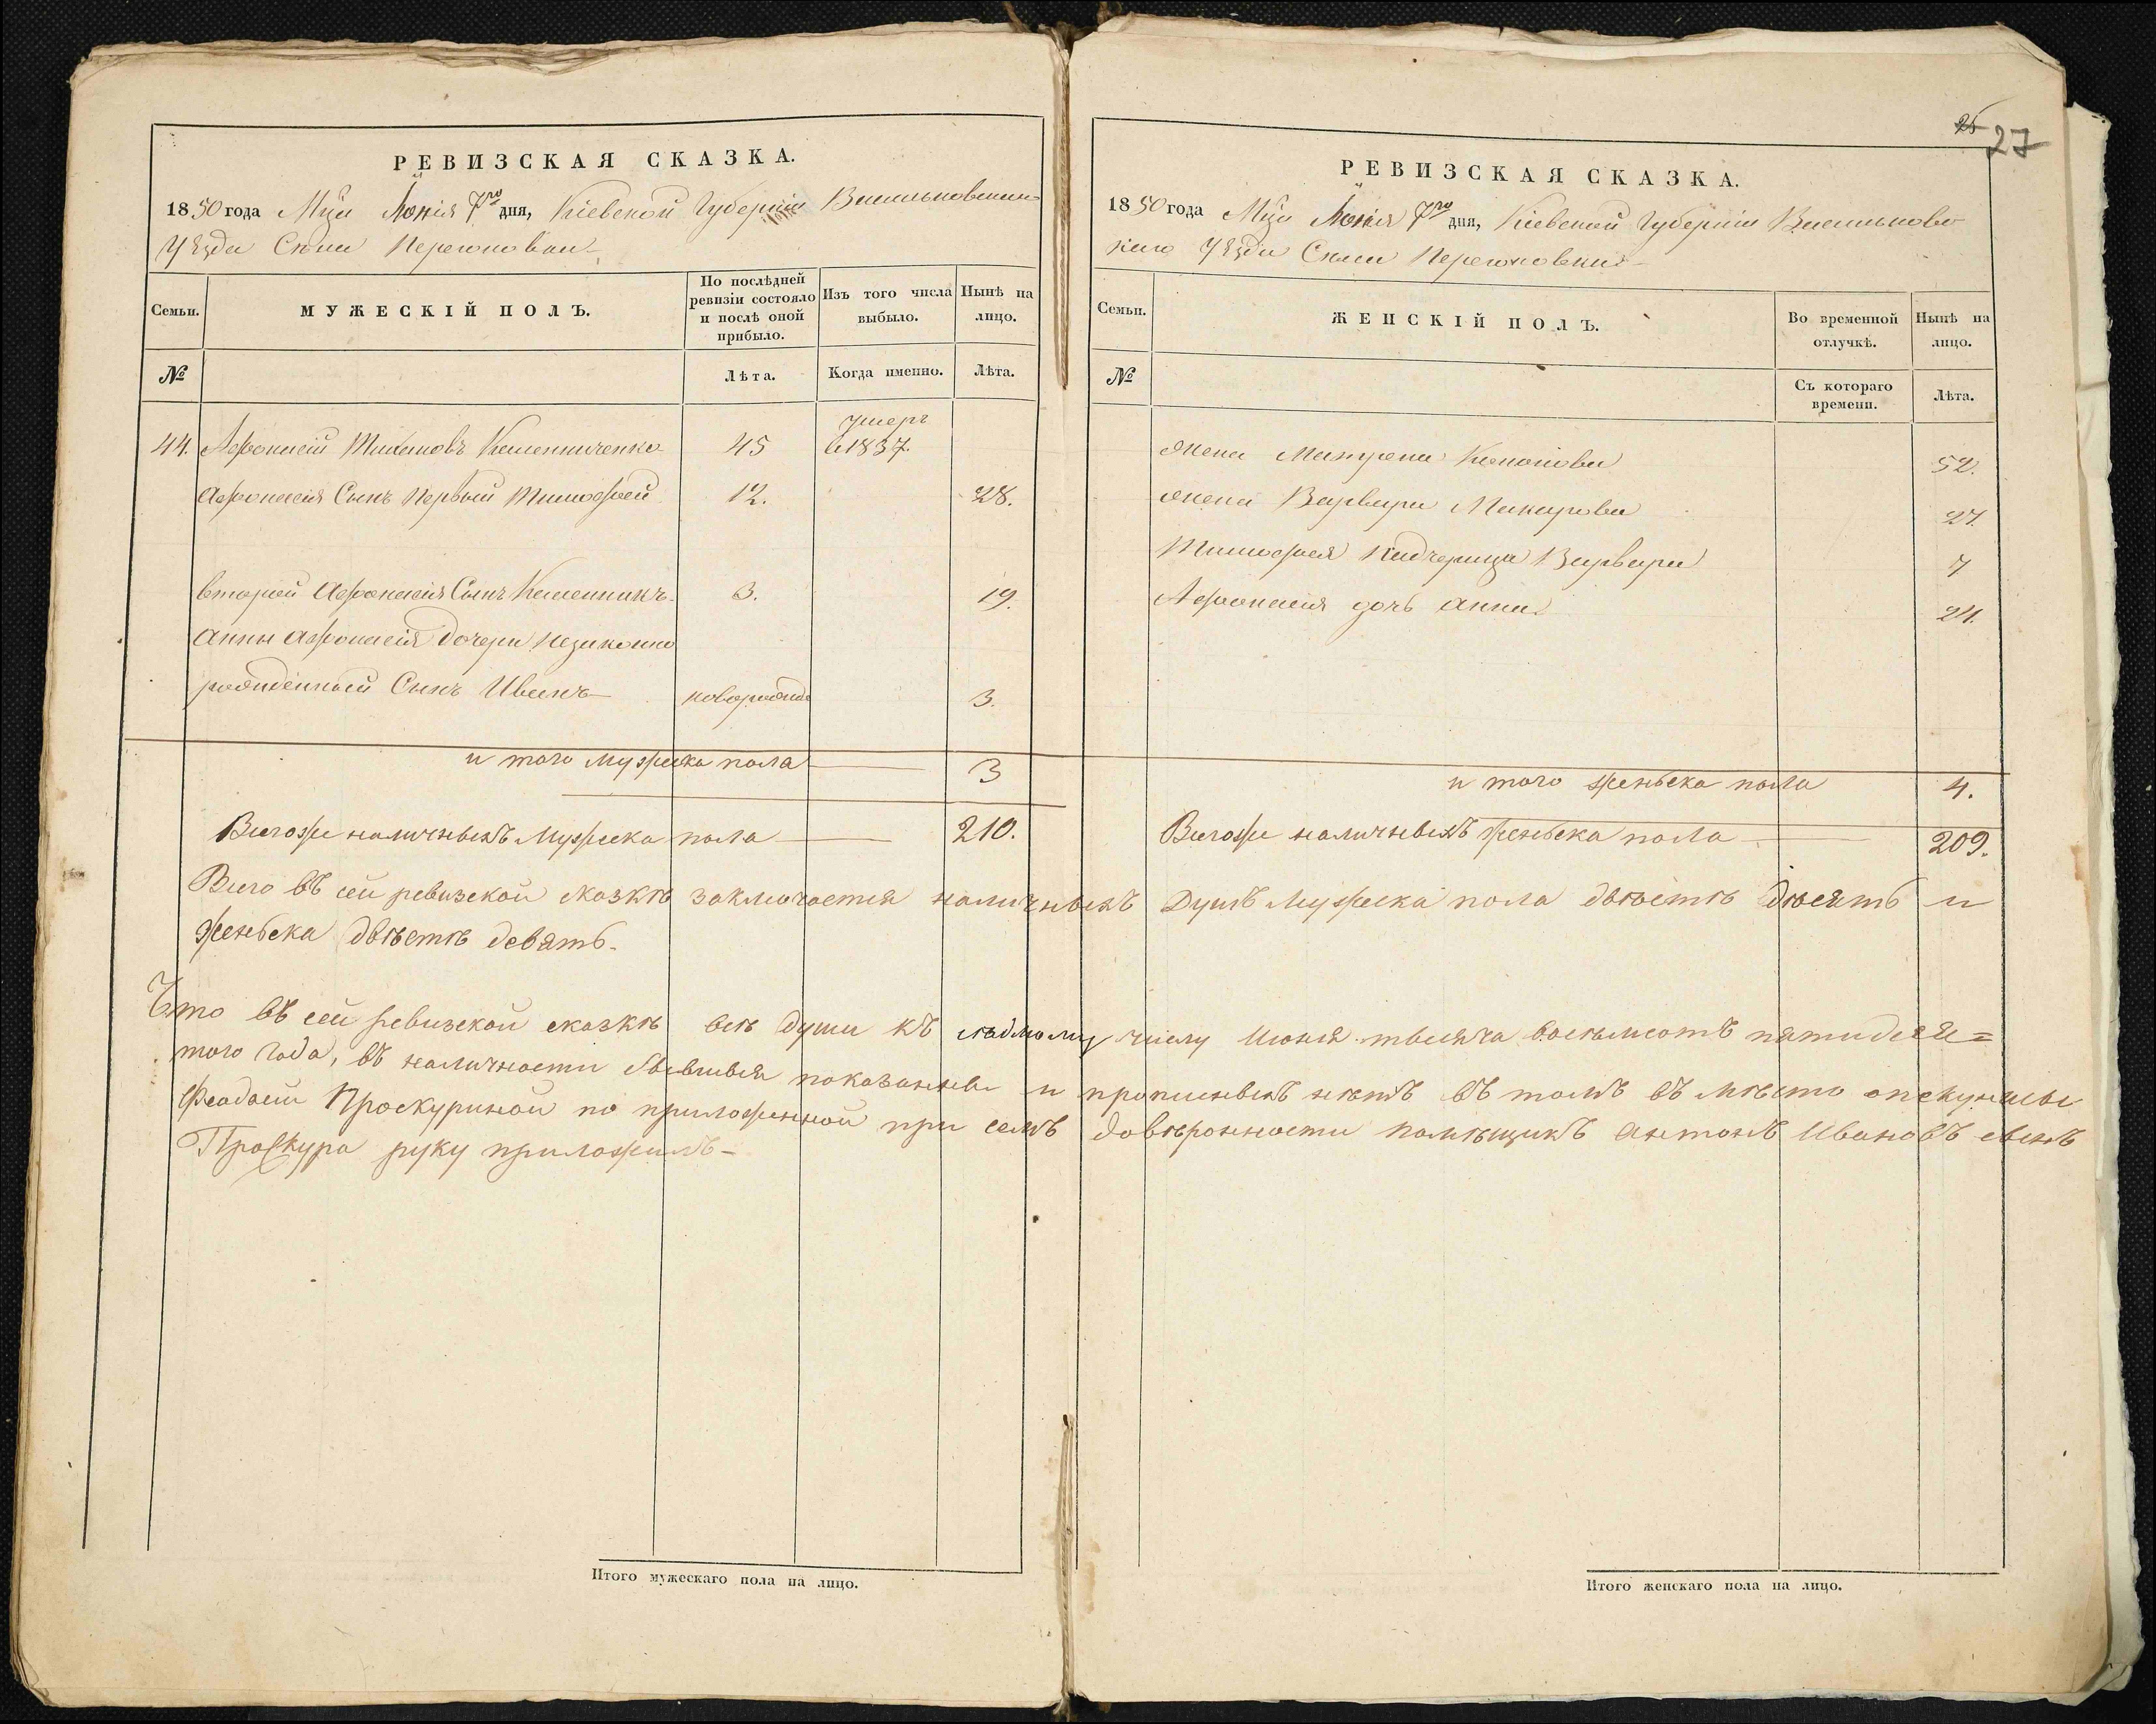 РЕВИЗСКАЯ СКАЗКА.
1850 года Мца Іюнія 7го дня, Кіевской Губерніи Васильковскаго
Уѣзда Села
Семьи.
МУЖЕСКІЙ ПОЛЪ.
По послѣдней ревизіи состояло и послѣ оной прибыло.
Изъ того числа выбыло.
Нынѣ на лицо.
№
Лѣта.
Когда именно.
Лѣта.
умеръ
44. Афонасій 45 1837.
Афонасія Сынъ Первый Тимофей 12. 28.
вторый Афонасія Сынъ 3. 19.
Анны Афонасія дочери незаконно
рожденный Сынъ Иванъ новорожде 3.
и того Мужеска пола 3
Всего же наличныхъ Мужеска пола 210.
Всего въ сей ревизской сказкѣ заключается наличныхъ
женьска двѣстѣ девять.
Что въ сей ревизской сказкѣ всѣ души къ седмому
того года, въ наличности бывшыя показанны и
Феодосіи Проскуриной по приложенной при семъ
Проскура руку приложилъ
Итого мужескаго пола на лицо.
25
27
РЕВИЗСКАЯ СКАЗКА.
1850 года Мца Іюнія 7го дня, Кіевской Губерніи Васильковс
каго Уѣзда Села
Семьи.
ЖЕНСКІЙ ПОЛЪ.
Во временной отлучкѣ.
Нынѣ на лицо.
№
Съ котораго времени.
Лѣта.
Жена 52.
Жена Варвара Макарова 27.
Тимофея Падчерица Варвара 7
Афонасія дочь Анна 24.
и того женьска пола 4.
Всего же наличныхъ женьска пола 209.
Душъ Мужеска пола двѣстѣ десять и
числу Июня тысяча восемьсотъ пятидеся=
прописныхъ нѣтъ въ томъ въ мѣсто опекуншы
довѣронности помѣщикъ Антонъ Ивановъ сынъ
Итого женскаго пола на лицо.